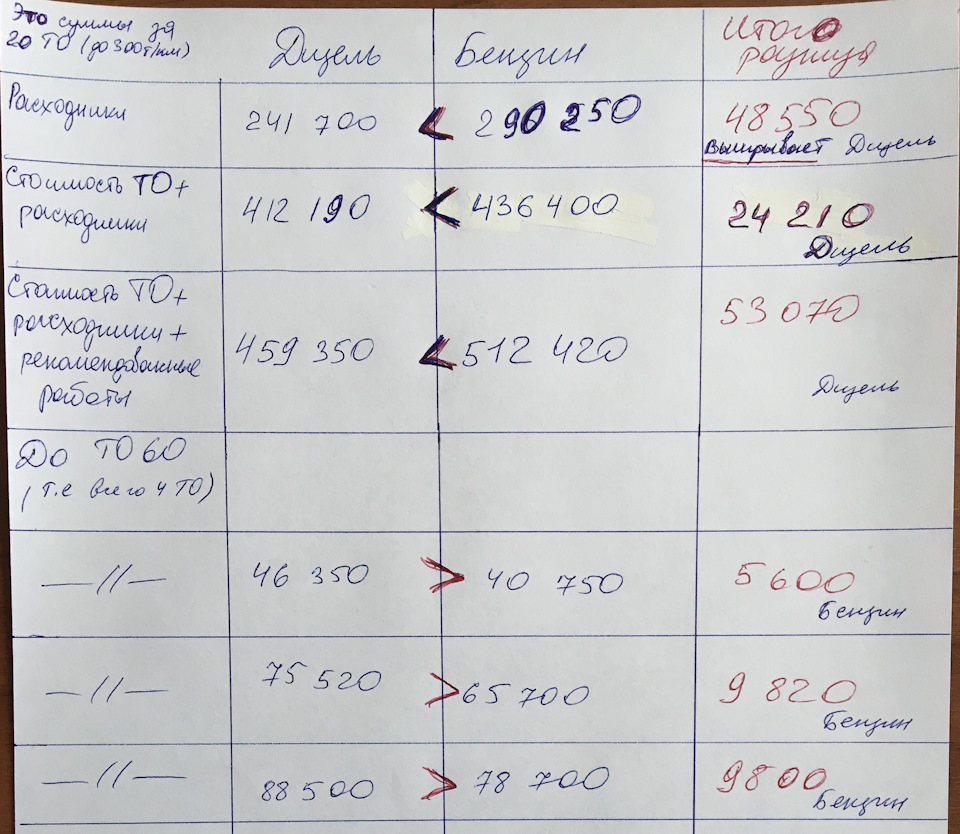 Это суммы за
20 ТО (до 300 т/км)
Дизель
Бензин
Итого
разница
Расходники
241 700
<
290 250
48 550
выигрывает Дизель
Стоимость ТО +
расходники
412 190
<
436 400
24 210
Дизель
Стоимость ТО +
расходники +
рекомендованные
работы
459 350
<
512 420
53 070
Дизель
До ТО 60
(т.е всего 4 ТО)
—//—
46 350
>
40 750
5 600
Бензин
—//—
75 520
>
65 700
9 820
Бензин
—//—
88 500
>
78 700
9800
Бензин